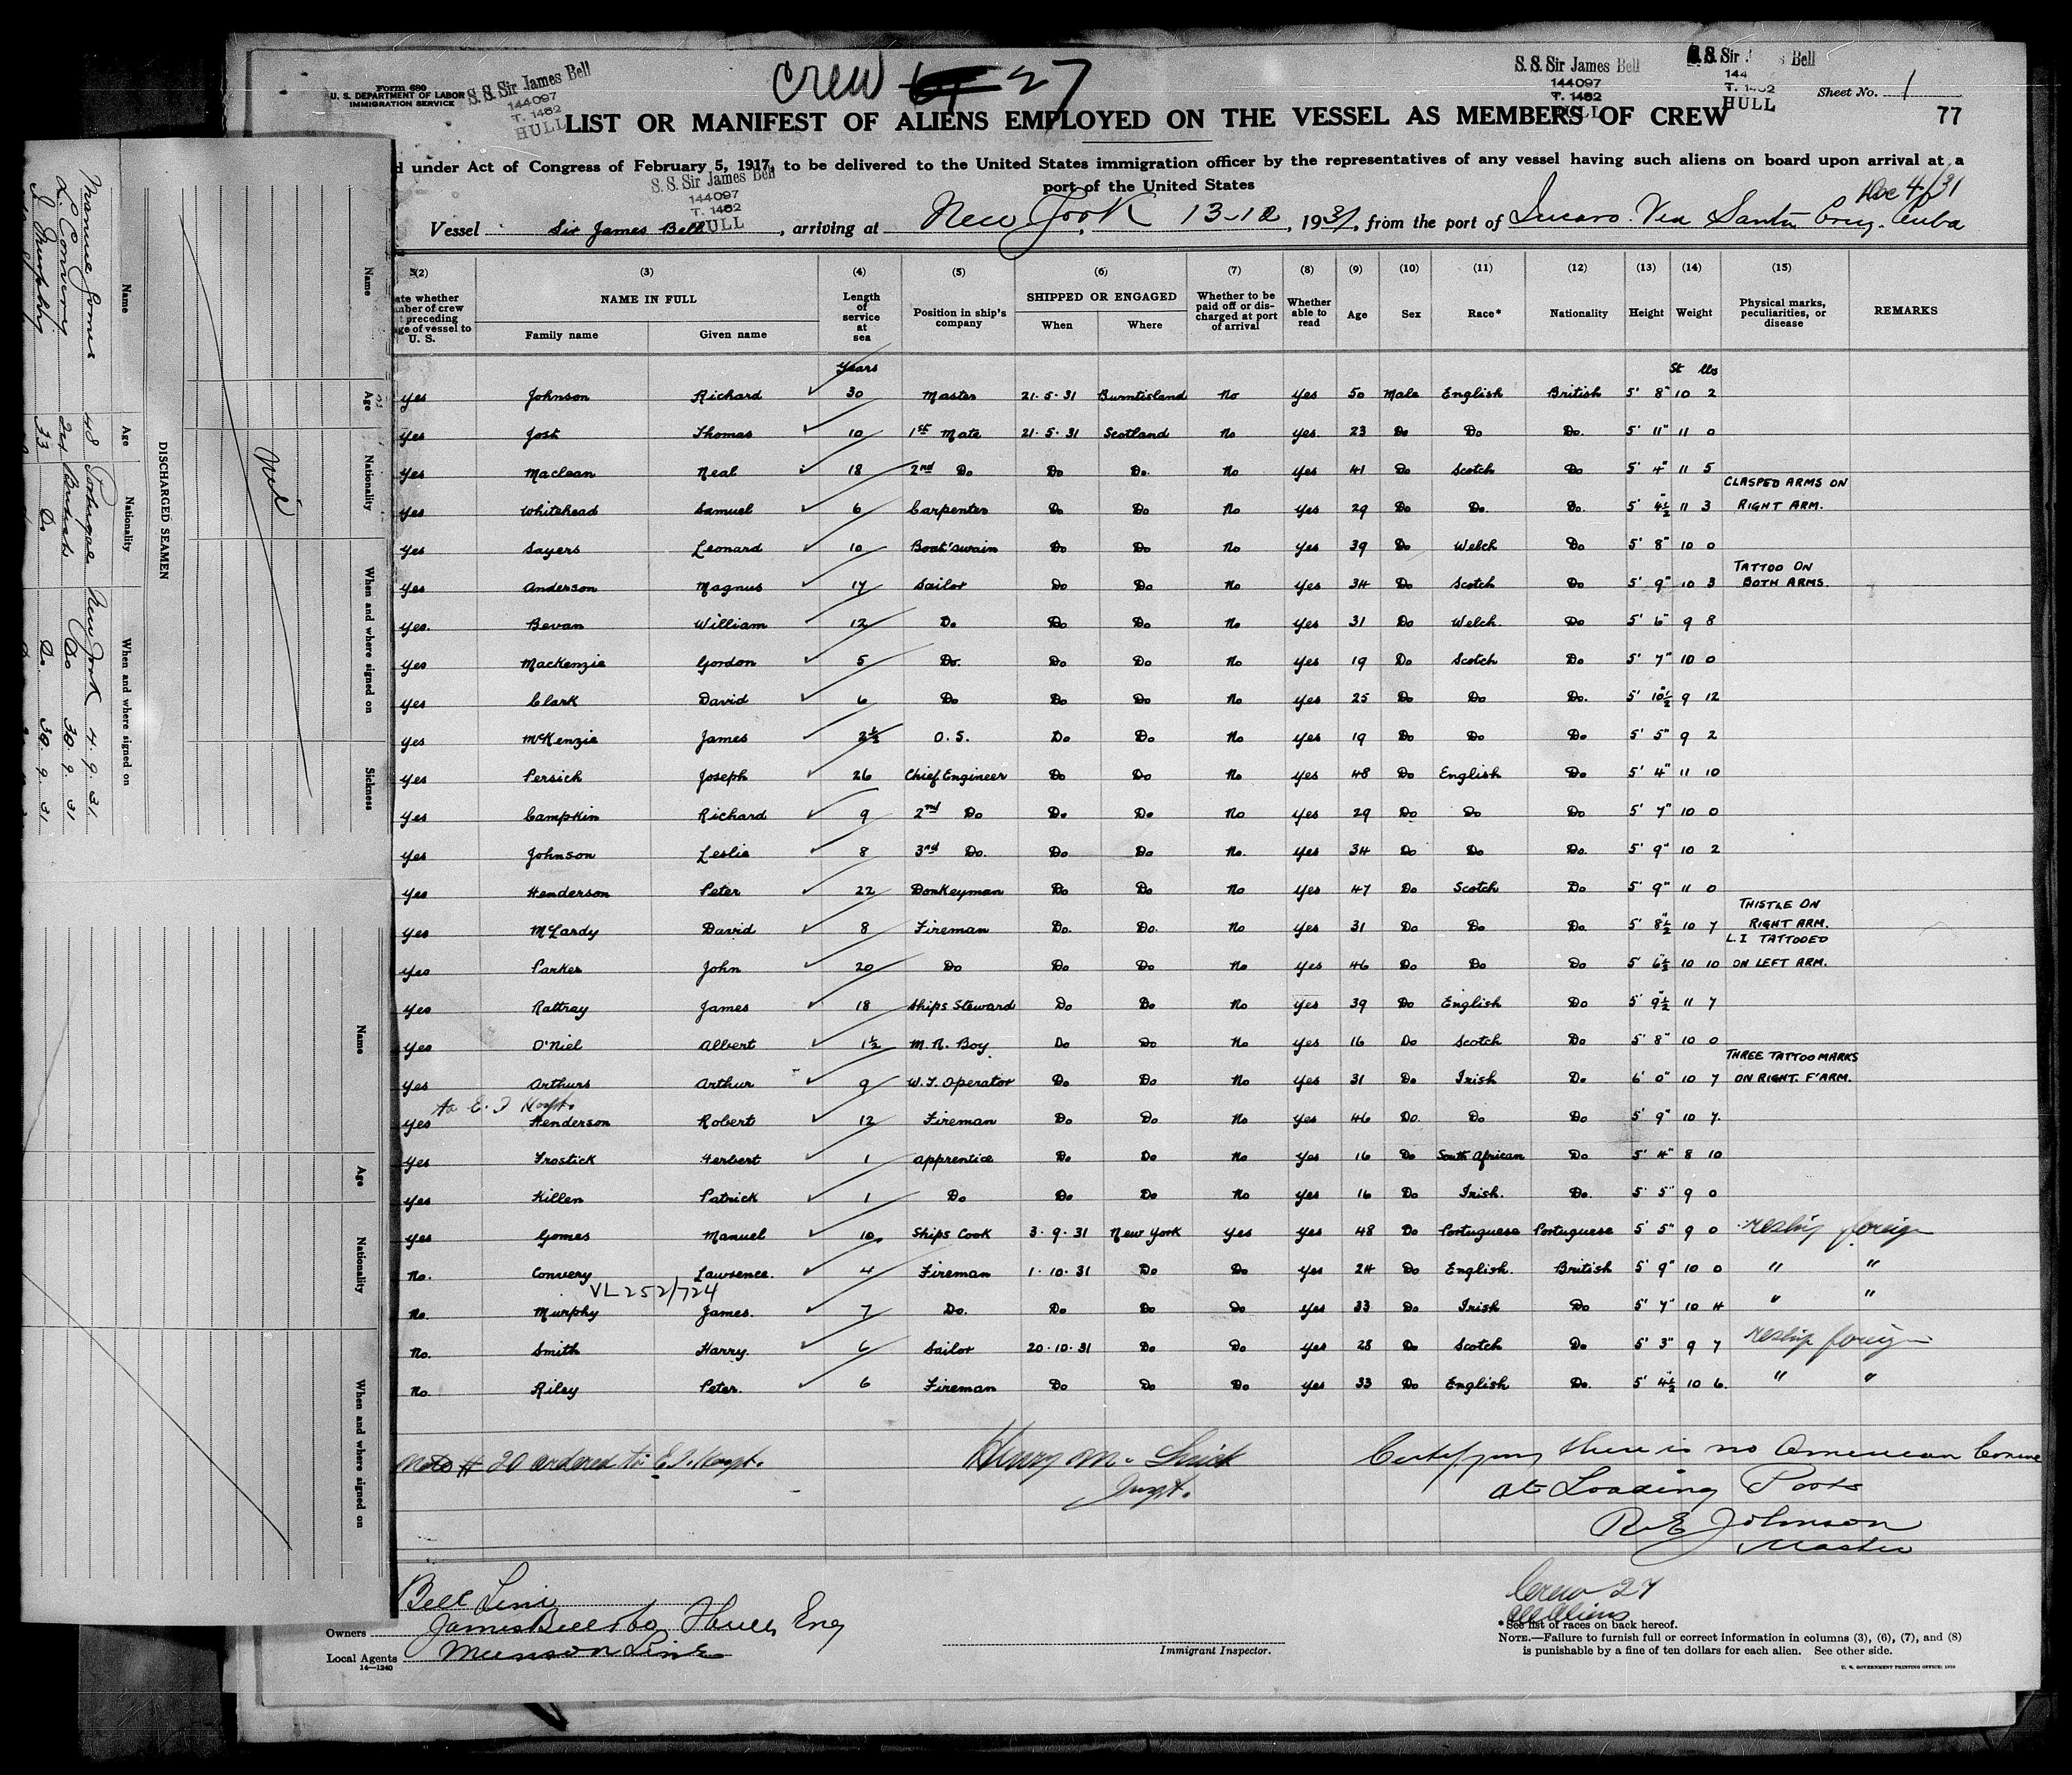 Crew 27
Form 680
U. S. DEPARTMENT OF LABOR
IMMIGRATION SERVICE
S. S. Sir James Bell
144097
T. 1482
HULL
S. S. Sir James Bell
144097
T. 1482
HULL
S. S. Sir Bell
144
HULL
Sheet No. 1
77
LIST OR MANIFEST OF ALIENS EMPLOYED ON THE VESSEL AS MEMBERS OF CREW
d under Act of Congress of February 5, 1917, to be delivered to the United States immigration officer by the representatives of any vessel having such aliens on board upon arrival at a
port of the United States
S. S. Sir James Bell
144097
T. 1482
HULL
Dec 4/31
Vessel Sir James Bell, arriving at New York 13-12, 1931, from the port of Jucaro. Via Santa Cruz. Cuba
(2) (3) (4) (5) (6) (7) (8) (9) (10) (11) (12) (13) (14) (15)
ate whether
mber of crew
preceding
age of vessel to
U. S.
NAME IN FULL
Family name Given name
Length
of
service
at
sea
Position in ship's
company
SHIPPED OR ENGAGED
When Where
Whether to be
paid off or dis-
charged at port
of arrival
Whether
able to
read
Age Sex Race* Nationality Height Weight
Physical marks,
peculiarities, or
disease
REMARKS
Years St lbs
Yes Johnson Richard 30 Master 21·5·31 Burntisland No Yes 50 Male English British 5' 8" 10 2
Yes Jost Thomas 10 1st Mate 21·5·31 Scotland No Yes 23 Do Do Do. 5' 11" 11 0
Yes Maclean Neal 18 2nd Do Do Do. No Yes 41 Do Scotch Do 5' 4" 11 5
CLASPED ARMS ON
Yes Whitehead Samuel 6 Carpenter Do Do No Yes 29 Do Do. Do. 5' 4½" 11 3 RIGHT ARM.
Yes Sayers Leonard 10 Boat'swain Do Do No Yes 39 Do Welch Do 5' 8" 10 0
TATTOO ON
Yes Anderson Magnus 17 Sailor Do Do No Yes 34 Do Scotch Do 5' 9" 10 3 BOTH ARMS.
Yes. Bevan William 12 Do Do Do No Yes 31 Do Welch. Do 5' 6" 9 8
Yes Mackenzie Gordon 5 Do. Do Do No Yes 19 Do Scotch Do 5' 7" 10 0
Yes Clark David 6 Do Do Do No Yes 25 Do Do Do. 5' 10½" 9 12
Yes McKenzie James 2½ O. S. Do Do No Yes 19 Do Do Do 5' 5" 9 2
Yes Persich Joseph 26 Chief Engineer Do Do No Yes 48 Do English Do 5' 4" 11 10
Yes Campkin Richard 9 2nd Do Do Do No Yes 29 Do Do Do 5' 7" 10 0
Yes Johnson Leslie 8 3rd Do. Do Do No. Yes 34 Do Do Do. 5' 9" 10 2
Yes Henderson Peter 22 Donkeyman Do Do No Yes 47 Do Scotch Do 5' 9" 11 0
THISTLE ON
Yes McLardy David 8 Fireman Do. Do. No Yes 31 Do Do Do. 5' 8½" 10 7 RIGHT ARM.
L.I TATTOOED
Yes Parker John 20 Do Do Do No Yes 46 Do Do Do 5' 6½" 10 10 ON LEFT ARM.
Yes Rattray James 18 Ships Steward Do Do No Yes 39 Do English Do 5' 9½" 11 7
Yes O'Niel Albert 1½ M. R. Boy. Do Do No Yes 16 Do Scotch Do 5' 8" 10 0
THREE TATTOO MARKS
Yes Arthurs Arthur 9 W. T. Operator Do Do No Yes 31 Do Irish Do 6' 0" 10 7 ON RIGHT. F'ARM.
to E. I Hospt.
Yes Henderson Robert 12 Fireman Do Do No Yes 46 Do. Do Do 5' 9" 10 7.
Yes Frostick Herbert 1 Apprentice Do Do No Yes 16 Do South African Do 5' 4" 8 10
Yes Killen Patrick 1 Do Do Do No Yes 16 Do Irish. Do. 5' 5" 9 0
Yes Gomes Manuel 10 Ships Cook 3·9·31 New York Yes Yes 48 Do Portuguese Portuguese 5' 5" 9 0 reship foreign
No. Convery Lawrence. 4 Fireman 1·10·31 Do Do Yes 24 Do English. British 5' 9" 10 0 " "
VL 252/724
No Murphy James. 7 Do. Do Do Do Yes 33 Do Irish Do 5' 7" 10 4 " "
No. Smith Harry. 6 Sailor 20·10·31 Do Do Yes 28 Do Scotch Do 5' 3" 9 7 reship foreign
No. Riley Peter. 6 Fireman Do Do Do Yes 33 Do English Do. 5' 4½" 10 6. " "
Note # 20 ordered to E.I. Hospt.
Henry M.
Inspt.
Certifying there is no American Consul
at Loading Ports
R E Johnson
Master
Crew 27
all Aliens
Bell Line
Owners James Bell & Co Hull, Eng
Local Agents Munson Line
14—1240
Immigrant Inspector.
*See list of races on back hereof.
NOTE.—Failure to furnish full or correct information in columns (3), (6), (7), and (8)
is punishable by a fine of ten dollars for each alien. See other side.
U. S. GOVERNMENT PRINTING OFFICE: 1929
Name Age Nationality When and where signed on
Manuel Gomes 48 Portugese New York 4. 9. 31
L. Convery 24 British Do 30. 9. 31
J. Murphy 33 Do Do. 30. 9. 31
DISCHARGED SEAMEN
Nil
Name Age Nationality When and where signed on Sickness
Name Age Nationality When and where signed on